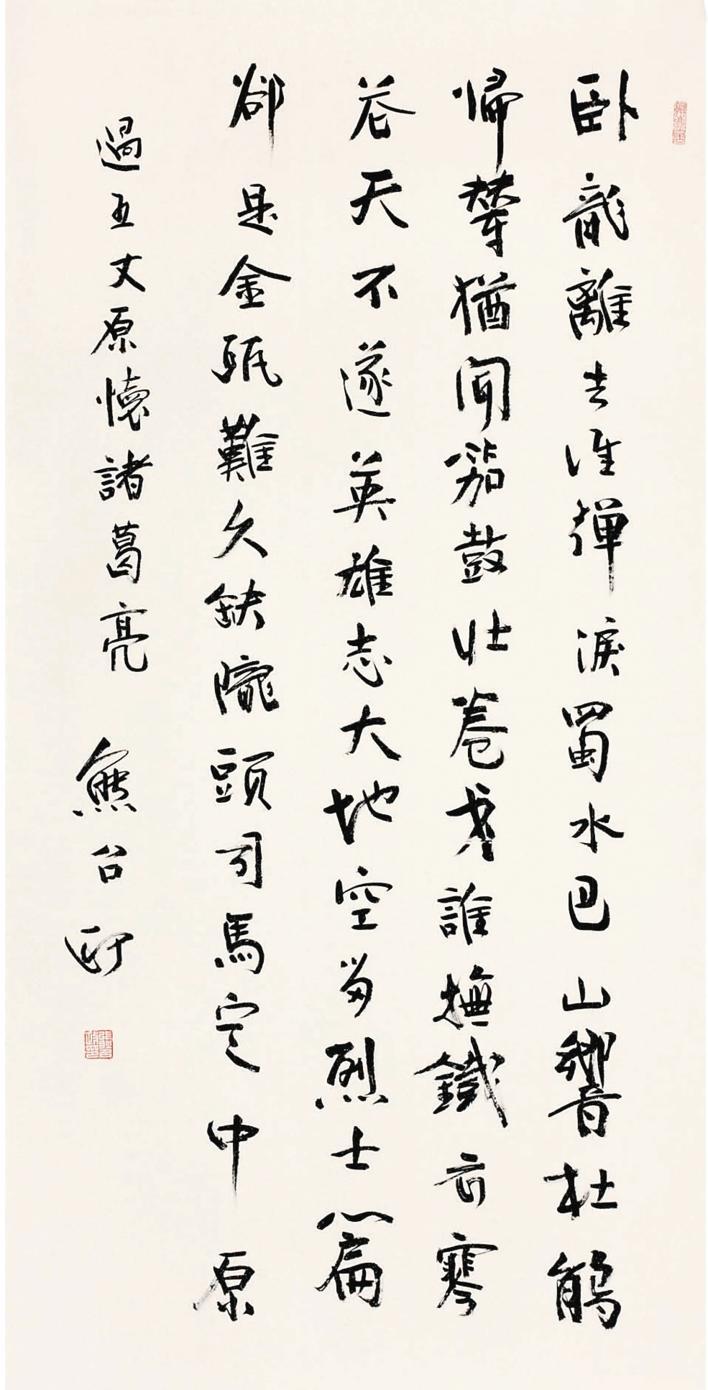 卧龍離去谁彈淚蜀水巴山響杜鵑
歸輦猶聞笳鼓壯卷戈誰撫鐵衣寒
蒼天不遂英雄志大地空留烈士篇
卻是金甌難久缺隴頭司馬定中原
過五丈原懷諸葛亮 熊召政